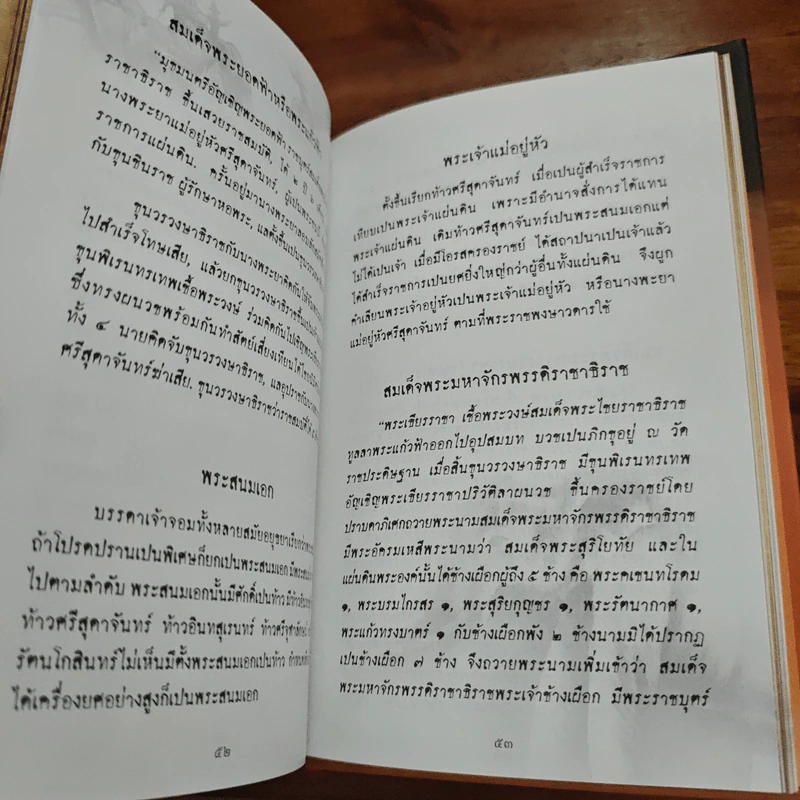 สมเด็จพระยอดฟ้าหรือพระแก้วฟ้า
"มุขมนตรีอัญเชิญพระยอดฟ้า
ราชาธิราช ขึ้นเสวยราชสมบัติ, ได้ ๒ ปี
นางพระยาแม่อยู่หัวศรีสุดาจันทร์, ผู้เปน
ราชการแผ่นดิน. ครั้นอยู่มานางพระยา
กับขุนชินราช ผู้รักษาหอพระ, แลตั้งขึ้นเปนขุนวรวง
ขุนวรวงษาธิราชกับนางพระยาคิดกัน
ไปสำเร็จโทษเสีย, แล้วยกขุนวรวงษาธิราชขึ้น
ขุนพิเรนทรเทพเชื้อพระวงษ์ ร่วมคิดกัน
ซึ่งทรงผนวชพร้อมกันทำสัตย์เสี่ยงเทียน
ทั้ง ๔ นายคิดจับขุนวรวงษาธิราช, แลอุปราช
ศรีสุดาจันทร์ฆ่าเสีย. ขุนวรวงษาธิราชว่าราชสมบัติได้
พระสนมเอก
บรรดาเจ้าจอมทั้งหลายสมัยอยุธยาเรียกว่า
ถ้าโปรดปรานเปนพิเศษก็ยกเปนพระสนมเอก
ไปตามลำดับ พระสนมเอกนั้นมีศักดิ์เปนท้าว
ท้าวศรีสุดาจันทร์ ท้าวอินทสุเรนทร์
รัตนโกสินทร์ไม่เห็นมีตั้งพระสนมเอกเปนท้าว
ได้เครื่องยศอย่างสูงก็เปนพระสนมเอก
๕๒
พระเจ้าแม่อยู่หัว
ตั้งขึ้นเรียกท้าวศรีสุดาจันทร์ เมื่อเปนผู้สำเร็จราชการ
เทียบเปนพระเจ้าแผ่นดิน เพราะมีอำนาจสั่งการได้แทน
พระเจ้าแผ่นดิน เดิมท้าวศรีสุดาจันทร์เปนพระสนมเอกแต่
ไม่ได้เปนเจ้า เมื่อมีโอรสครองราชย์ ได้สถาปนาเปนเจ้าแล้ว
ได้สำเร็จราชการเปนยศยิ่งใหญ่กว่าผู้อื่นทั้งแผ่นดิน จึงผูก
คำเลียนพระเจ้าอยู่หัวเปนพระเจ้าแม่อยู่หัว หรือนางพะยา
แม่อยู่หัวศรีสุดาจันทร์ ตามที่พระราชพงษาวดารใช้
สมเด็จพระมหาจักรพรรดิราชาธิราช
"พระเธียรราชา เชื้อพระวงษ์สมเด็จพระไชยราชาธิราช
ทูลลาพระแก้วฟ้าออกไปอุปสมบท บวชเปนภิกขุอยู่ ณ วัด
ราชประดิษฐาน เมื่อสิ้นขุนวรวงษาธิราช มีขุนพิเรนทรเทพ
อัญเชิญพระเธียรราชาปริวัติลาผนวช ขึ้นครองราชย์โดย
ปราบดาภิเศกถวายพระนามสมเด็จพระมหาจักรพรรดิราชาธิราช
มีพระอัครมเหสีพระนามว่า สมเด็จพระสุริโยทัย และใน
แผ่นดินพระองค์นั้นได้ช้างเผือกผู้ถึง ๕ ช้าง คือ พระคเชนทโรดม
๑, พระบรมไกรสร ๑, พระสุริยกุญชร ๑, พระรัตนากาศ ๑,
พระแก้วทรงบาตร์ ๑ กับช้างเผือกพัง ๒ ช้างนามมิได้ปรากฏ
เปนช้างเผือก ๗ ช้าง จึงถวายพระนามเพิ่มเข้าว่า สมเด็จ
พระมหาจักรพรรดิราชาธิราชพระเจ้าช้างเผือก มีพระราชบุตร์
๕๓